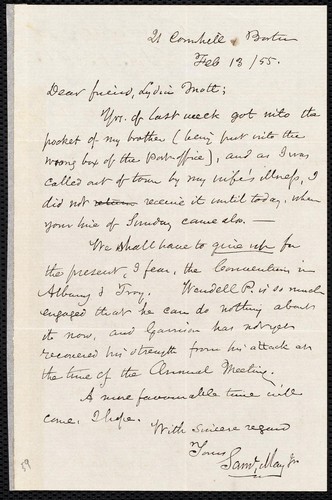 21 Cornhill, Boston
Feb 13/55.
Dear friend, Lydia Mott;
Yrs. of last week got into the
pocket of my brother (being put into the
wrong box of the Post office), and as I was
called out of town by my wife's illness, I
did not receive it until today, when
your line of Sunday came also. —
We shall have to give up for
the present, I fear, the Convention in
Albany & Troy. Wendell P. is so much
engaged that he can do nothing about
it now, and Garrison has not yet
recovered his strength from his attack at
the time of the Annual Meeting.
A more favourable time will
come, I hope.
With sincere regard
Yours
Saml. May Jr.